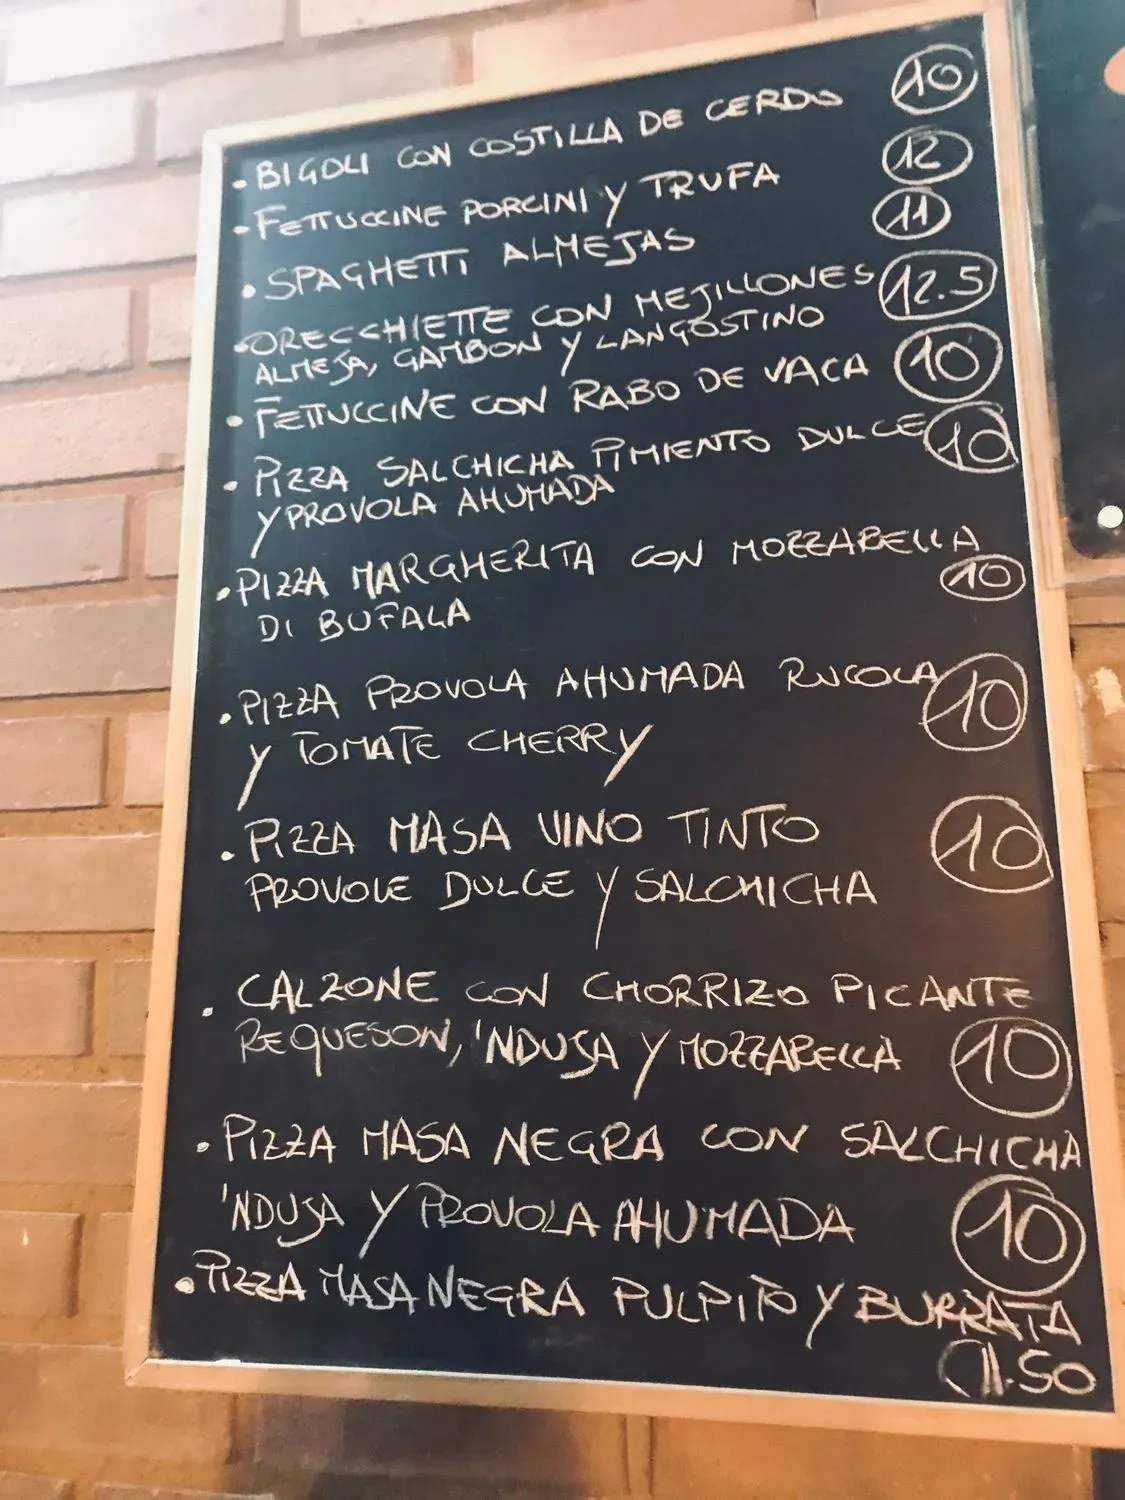 • BIGOLI CON COSTILLA DE CERDO 10
• FETTUCCINE PORCINI Y TRUFA 12
• SPAGHETTI ALMEJAS 11
• ORECCHIETTE CON MEJILLONES 12.5
ALMEJA, GAMBON Y LANGOSTINO
• FETTUCCINE CON RABO DE VACA 10
• PIZZA SALCHICHA PIMIENTO DULCE 10
Y PROVOLA AHUMADA
• PIZZA MARGHERITA CON MOZZARELLA
10
DI BUFALA
• PIZZA PROVOLA AHUMADA RUCOLA 10
Y TOMATE CHERRY
• PIZZA MASA VINO TINTO 10
PROVOLE DULCE Y SALCHICHA
• CALZONE CON CHORRIZO PICANTE
REQUESON, 'NDUJA Y MOZZARELLA 10
• PIZZA MASA NEGRA CON SALCHICHA
'NDUJA Y PROVOLA AHUMADA 10
• PIZZA MASA NEGRA PULPITO Y BURRATA
11.50